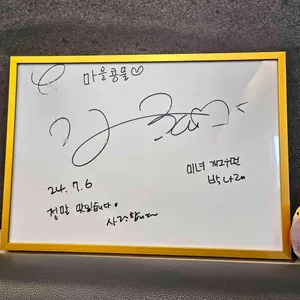 마을콩물♡
24. 7. 6
정말 맛있습니다.
사랑합니다
미녀 개그우먼
박나래